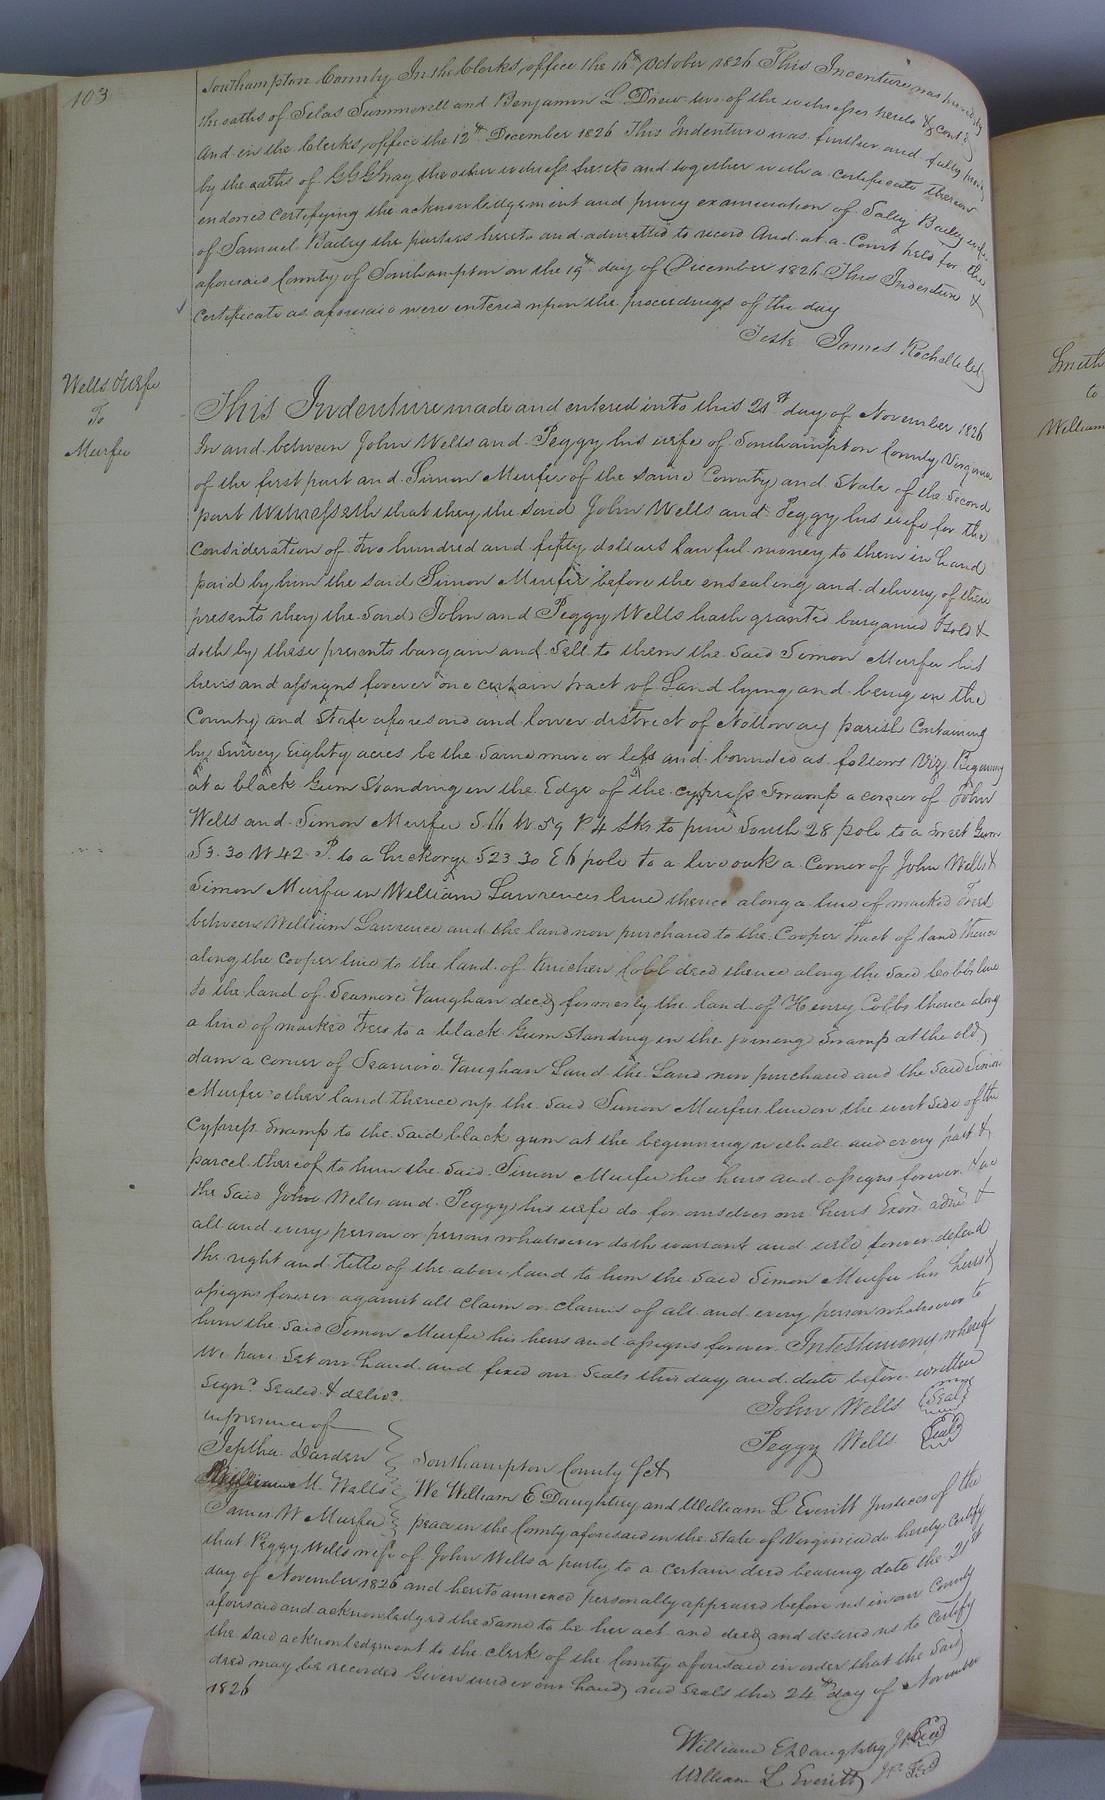 103
Southampton County In the Clerks office the 16th October 1826 This Indenture was proved by
the oaths of Silas Summerell and Benjamin L Drew two of the witnesses hereto & contd
And in the Clerks office the 12th December 1826 This Indenture was further and fully proved
by the oaths of G G Gray the other witness hereto and together with a certificate thereon
endorsed certifying the acknowledgement and privy examination of Saley Bailey wife
of Samuel Bailey the parties hereto and admitted to record And at a Court held for the
aforesaid County of Southampton on the 19th day of December 1826 This Indenture &
Certificate as aforesaid were entered upon the proceedings of the day
Teste James Rochelle Clk
Wells & wife
To
Murfee
This Indenture made and entered into this 21st day of November 1826
In and between John Wells and Peggy his wife of Southampton County Virginia
of the first part and Simon Murfee of the same County and State of the Second
part Witnesseth that they the said John Wells and Peggy his wife for the
Consideration of two hundred and fifty dollars lawful money to them in hand
paid by him the said Simon Murfee before the ensealing and delivery of these
presents they the said John and Peggy Wells hath granted bargained & sold &
doth by these presents bargain and Sell to them the Said Simon Murfee his
heirs and assigns forever one certain tract of Land lying and being in the
County and State aforesaid and lower district of Nottoway parish Containing
by Survey Eighty acres be the Same more or less and bounded as follows Viz Begining
at a black Gum Standing in the Edge of the cypress Swamp a corner of John
Wells and Simon Murfee S 16 W 59 P 4 Lks to pine South 28 pole to a Sweet Gum
S 3.30 W 42 P. to a hickory S 23 30 E 6 pole to a live oak a Corner of John Wells &
Simon Murfee in William Lawrences line thence along a line of marked Trees
between William Lawrence and the land now purchased to the Cooper Tract of land thence
along the Cooper line to the land of Kinchen Cobb decd thence along the Said Cobbs line
to the land of Seamore Vaughan decd formerly the land of Henry Cobbs thence along
a line of marked Trees to a black Gum Standing in the Swamp at the old
dam a corner of Seamore Vaughan Land the Land now purchased and the Said Simon
Murfee other land thence up the Said Simon Murfees line on the west Side of the
Cypress Swamp to the Said black gum at the beginning with all and every part &
parcel thereof to him the Said Simon Murfee his heirs and assigns forever
the Said John Wells and Peggy his wife do for ourselves our heirs Exors admrs &
all and every person or persons whatsoever doth warrant and will forever defend
the right and Title of the above land to him the Said Simon Murfee his heirs &
assigns forever against all Claim or claims of all and every person whatsoever to
him the Said Simon Murfee his heirs and assigns forever. In testimony whereof
We have Set our hand and fixed our Seals this day and date before written
Signd Sealed & delivd
in presence of
John Wells Seal
Peggy Wells Seal
Jeptha Darden
William M. Wells
James W Murfee
Southampton County Sct
We William E Daughtrey and William L Everitt Justices of the
peace in the County aforesaid in the State of Virginia do hereby Certify
that Peggy Wells wife of John Wells a party to a certain deed bearing date the 21st
day of November 1826 and hereto annexed personally appeared before us in our County
aforesaid and acknowledged the Same to be her act and deed and desired us to Certify
the said acknowledgment to the Clerk of the County aforesaid in order that the Said
deed may be recorded Given under our hands and Seals this 24th day of November
1826
William E Daughtrey JP Seal
William L Everitt JP Seal
Smith
to
William